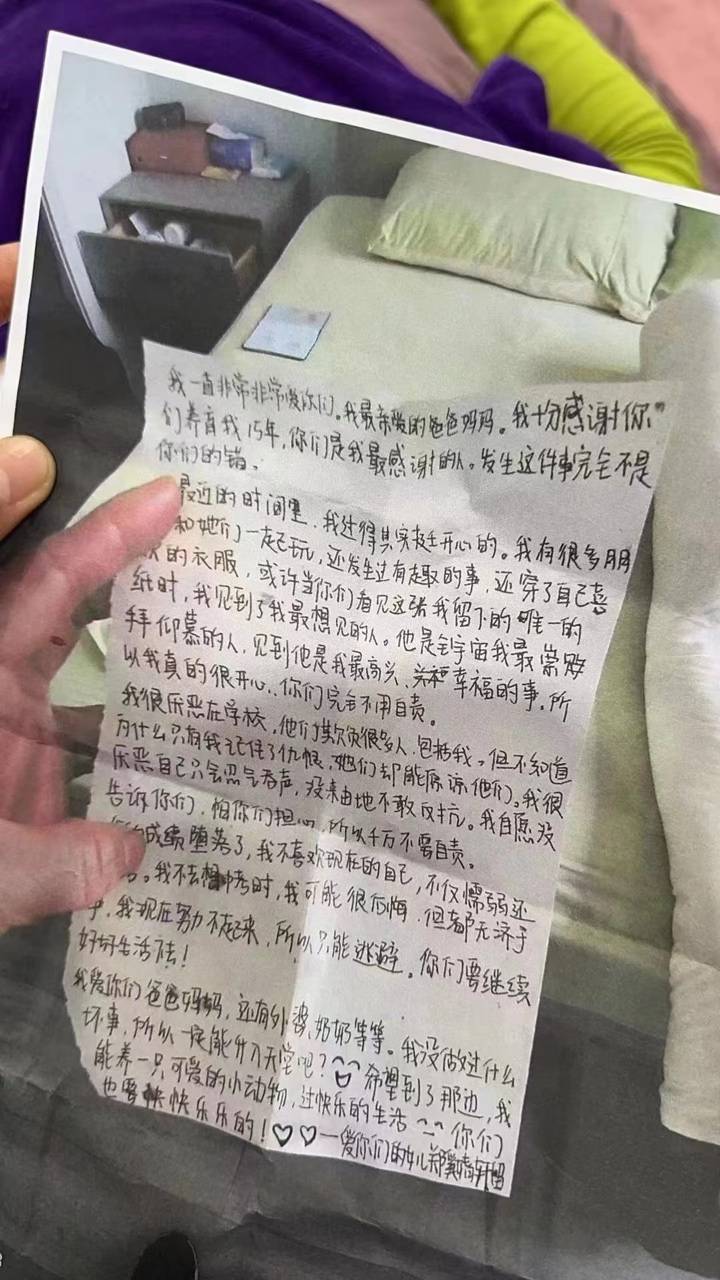 我一直非常非常爱你们。我最亲爱的爸爸妈妈。我十分感谢你
们养育我15年,你们是我最感谢的人。发生这件事完全不是
你们的错。
最近的时间里,我过得其实挺开心的。我有很多朋
和她们一起玩,还发生过有趣的事,还穿了自己喜
的衣服,或许当你们看见这张我留下的唯一的
纸时,我见到了我最想见的人。他是全宇宙我最崇
拜仰慕的人,见到他是我最高兴、幸福的事,所
以我真的很开心,你们完全不用自责。
我很厌恶在学校,他们欺负很多人,包括我。但不知道
为什么只有我记住了仇恨,她们却能原谅他们。我很
厌恶自己只会忍气吞声,没来由地不敢反抗。我自愿没
告诉你们,怕你们担心,所以千万不要自责。
成绩堕落了,我不喜欢现在的自己,不仅懦弱还
。我不去中考时,我可能很后悔,但都无济于
事,我现在努力不起来,所以只能逃避。你们要继续
好好生活下去!
我爱你们爸爸妈妈,还有外婆、奶奶等等。我没做过什么
坏事,所以一定能升入天堂吧?希望到了那边,我
能养一只可爱的小动物,过快乐的生活^_^你们
也要快快乐乐的!♡♡—爱你们的女儿